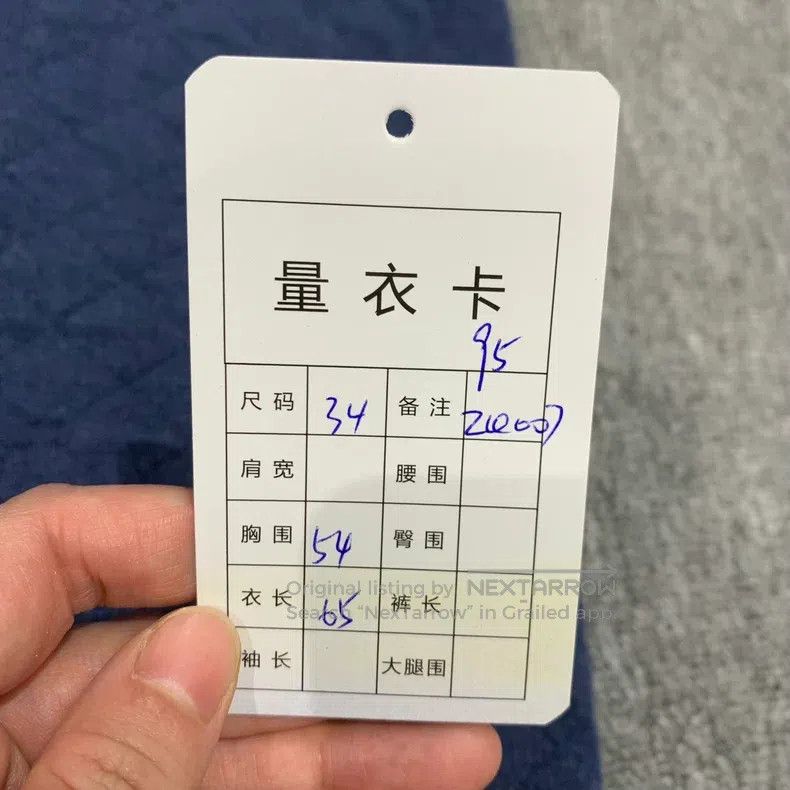 量衣卡
95
尺码 34 备注
肩宽 腰围
胸围 54 臀围
衣长 65 裤长
袖长 大腿围
Original listing by NEXTARROW
Search "NexTarrow" in Grailed app.